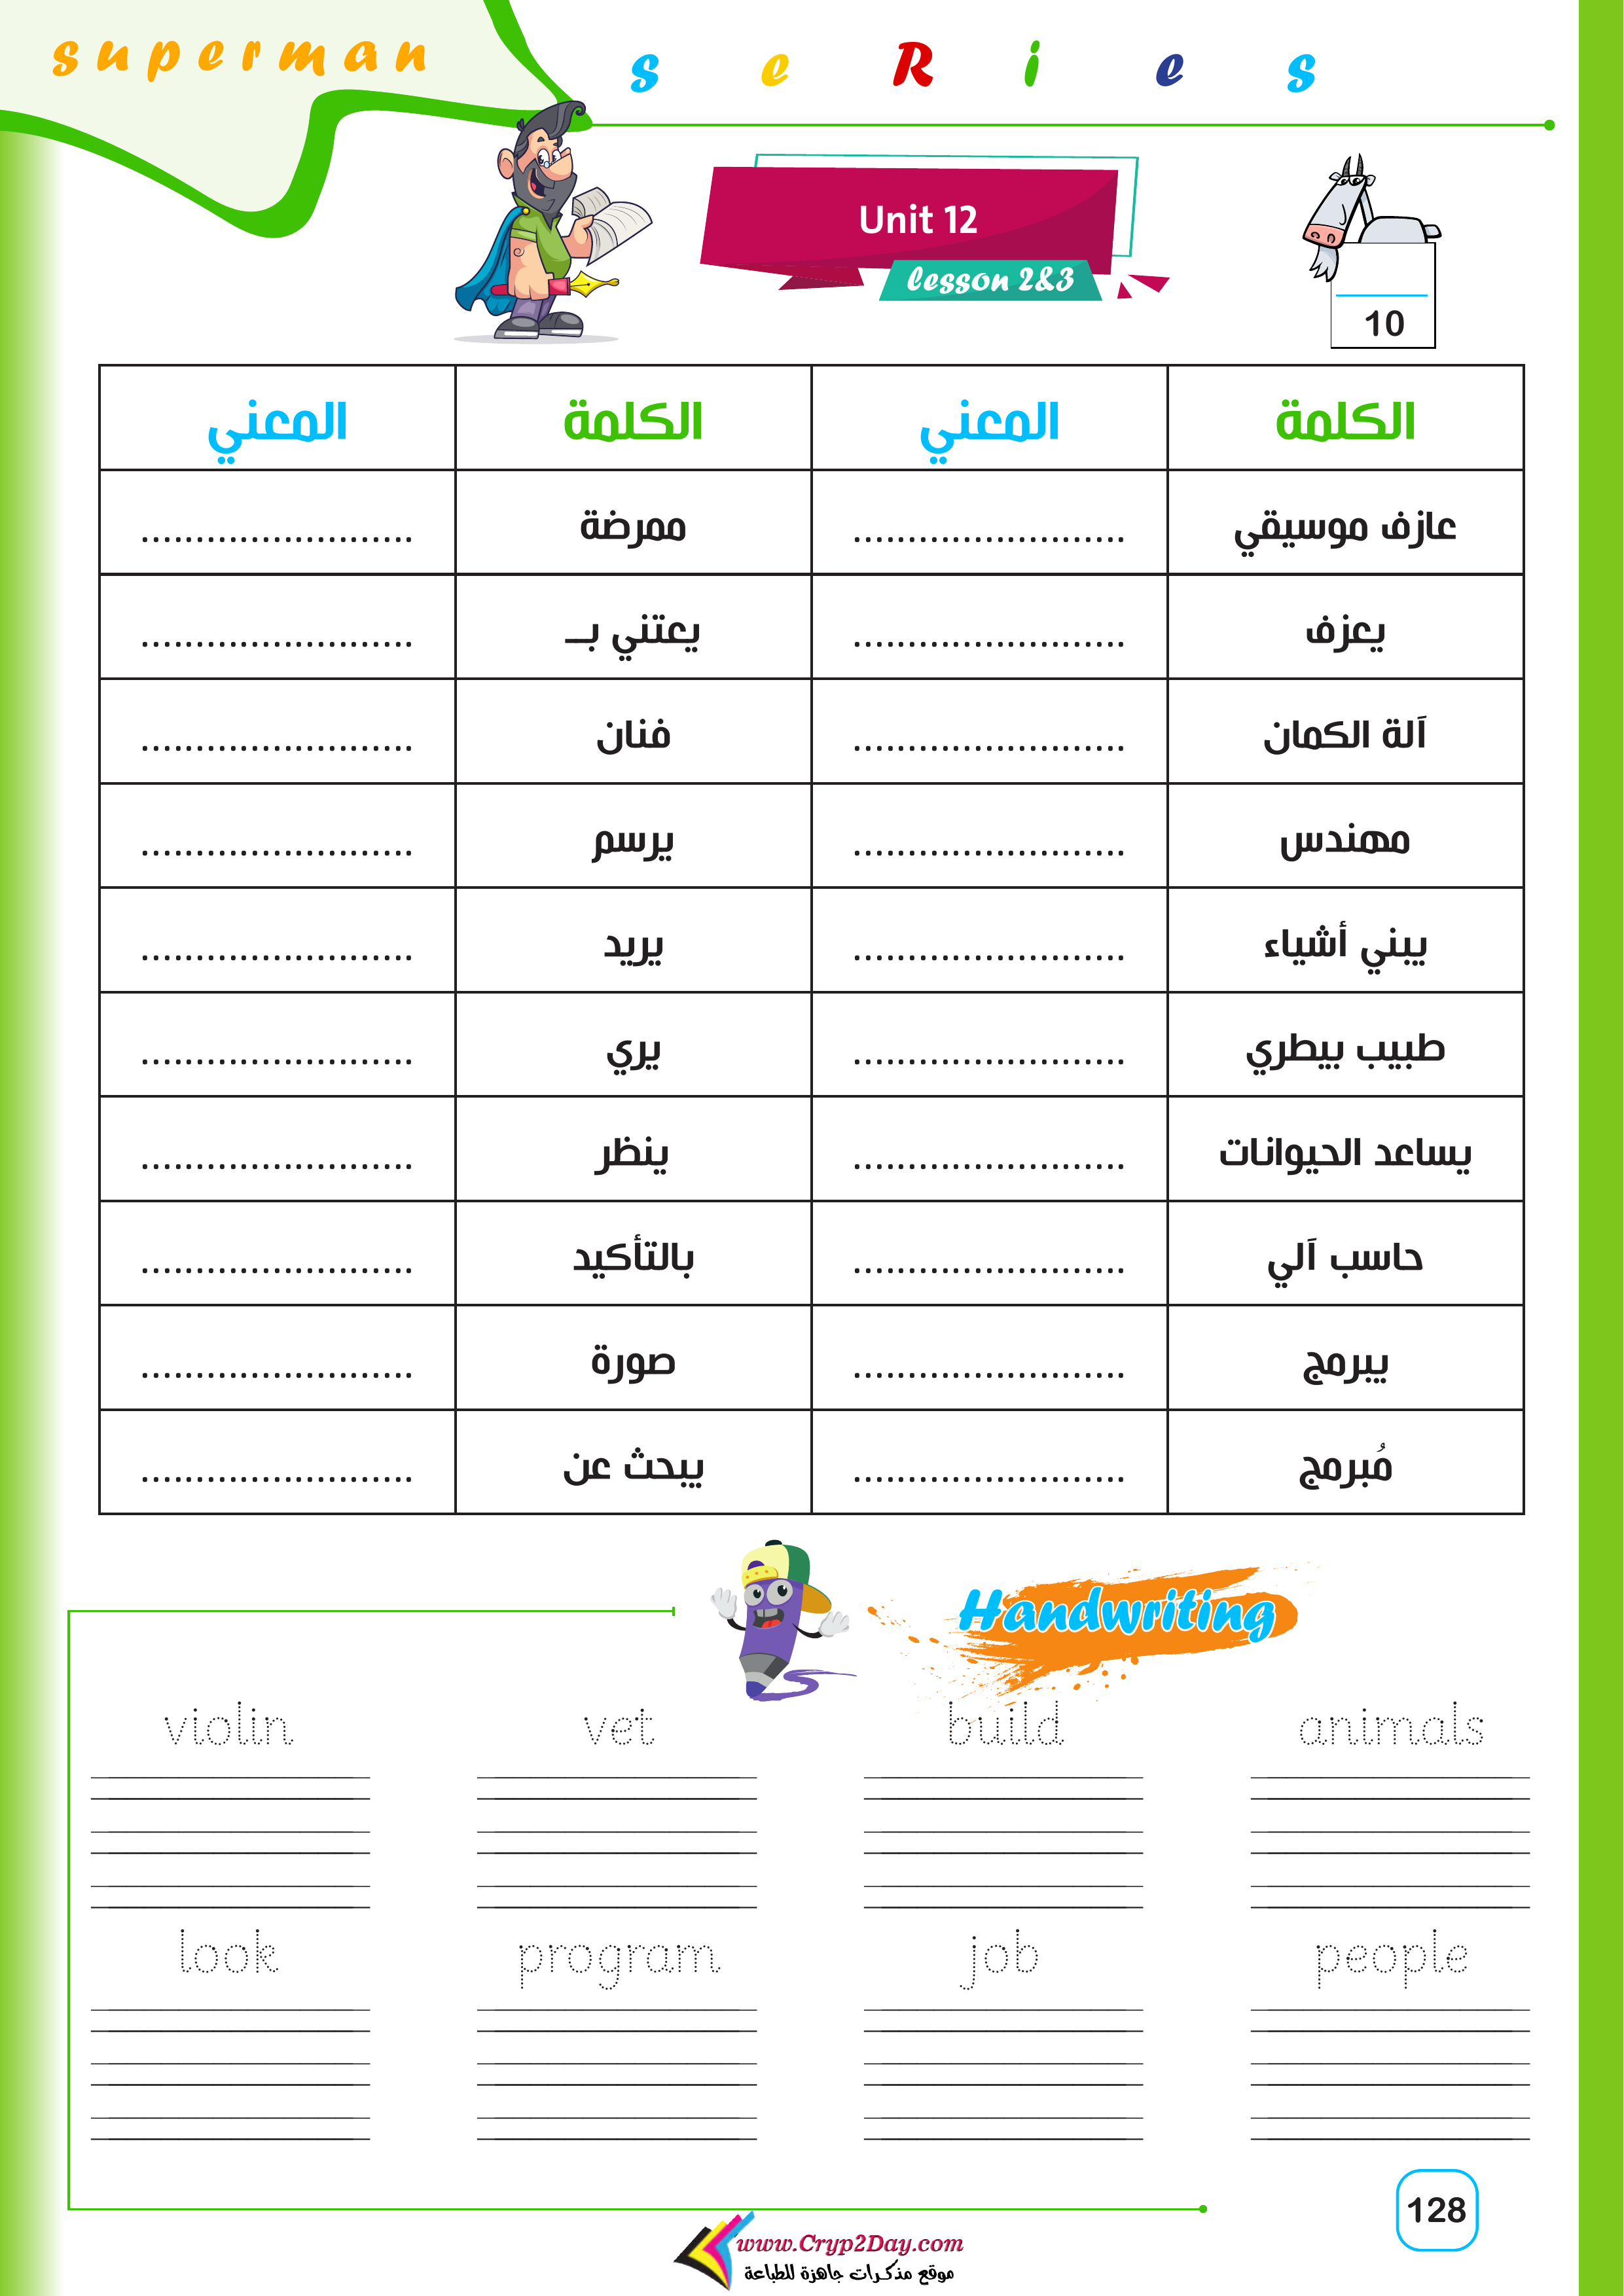 superman seRies
Unit 12
lesson 2&3
10
الكلمة المعني الكلمة المعني
عازف موسيقي ......................... ممرضة .........................
يعزف ......................... يعتني بـــ .........................
آلة الكمان ......................... فنان .........................
مهندس ......................... يرسم .........................
يبني أشياء ......................... يريد .........................
طبيب بيطري ......................... يري .........................
يساعد الحيوانات ......................... ينظر .........................
حاسب آلي ......................... بالتأكيد .........................
يبرمج ......................... صورة .........................
مُبرمج ......................... يبحث عن .........................
Handwriting
violin vet build animals
look program job people
128
www.Cryp2Day.com
موقع مذكرات جاهزة للطباعة